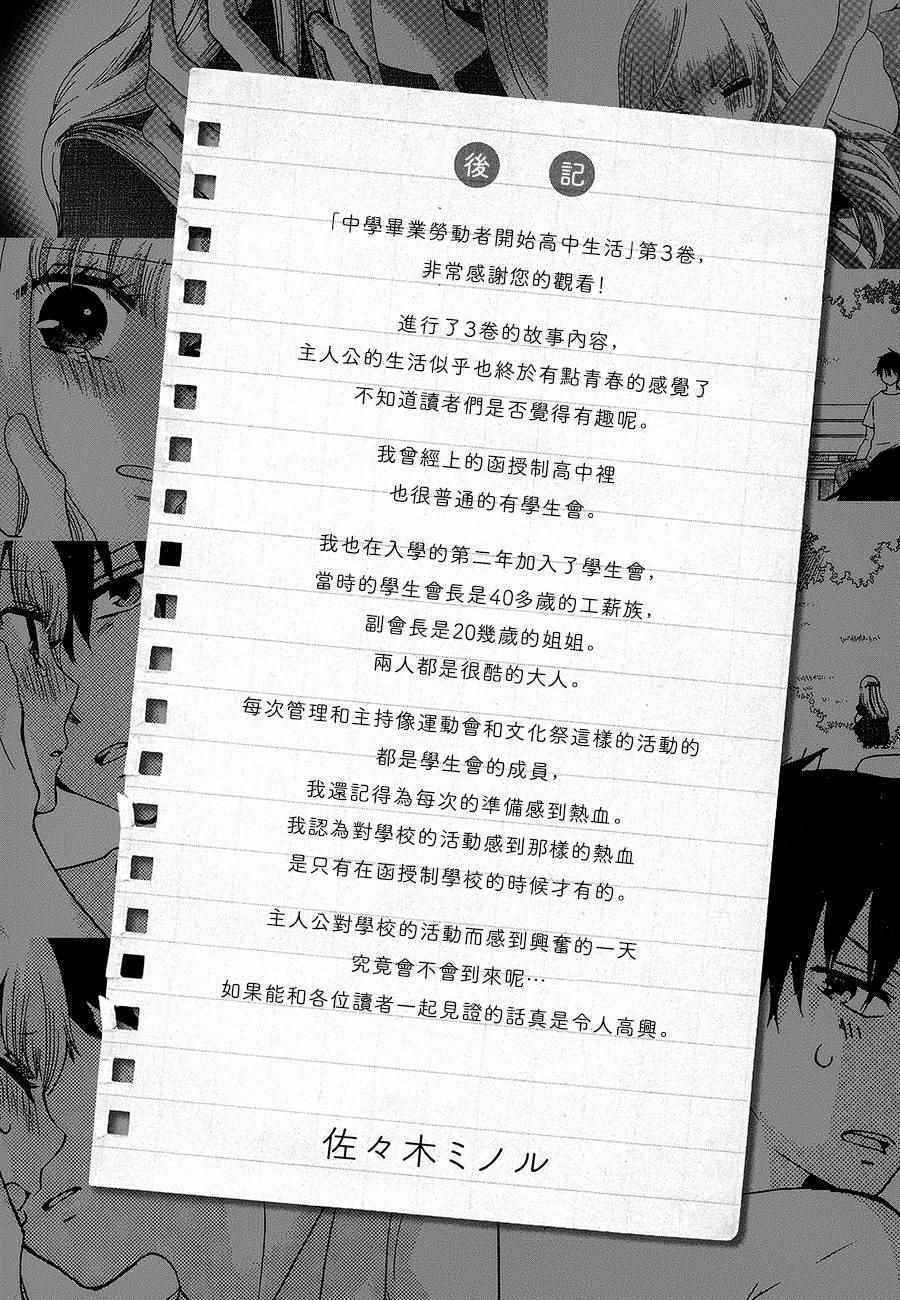 後記
「中學畢業勞動者開始高中生活」第3卷，
非常感謝您的觀看！
進行了3卷的故事內容，
主人公的生活似乎也終於有點青春的感覺了
不知道讀者們是否覺得有趣呢。
我曾經上的函授制高中裡
也很普通的有學生會。
我也在入學的第二年加入了學生會，
當時的學生會長是40多歲的工薪族，
副會長是20幾歲的姐姐。
兩人都是很酷的大人。
每次管理和主持像運動會和文化祭這樣的活動的
都是學生會的成員，
我還記得為每次的準備感到熱血。
我認為對學校的活動感到那樣的熱血
是只有在函授制學校的時候才有的。
主人公對學校的活動而感到興奮的一天
究竟會不會到來呢…
如果能和各位讀者一起見證的話真是令人高興。
佐々木ミノル